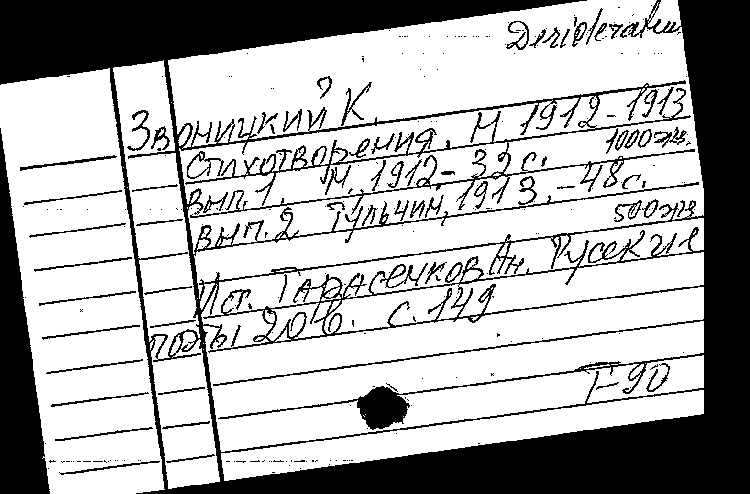 Desiderata
Звоницкий К.
Стихотворения. М. 1912-1913
1000экз.
вып.1. М., 1912.- 32с.
вып.2 Тульчин, 1913.-48с.
500экз
Ист. Тарасенков Ан. Русские
поэты 20 в. с. 149
Т-90